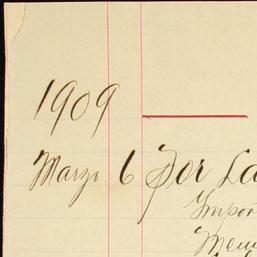 1909
Marzo 6 Por La
Impor
Men